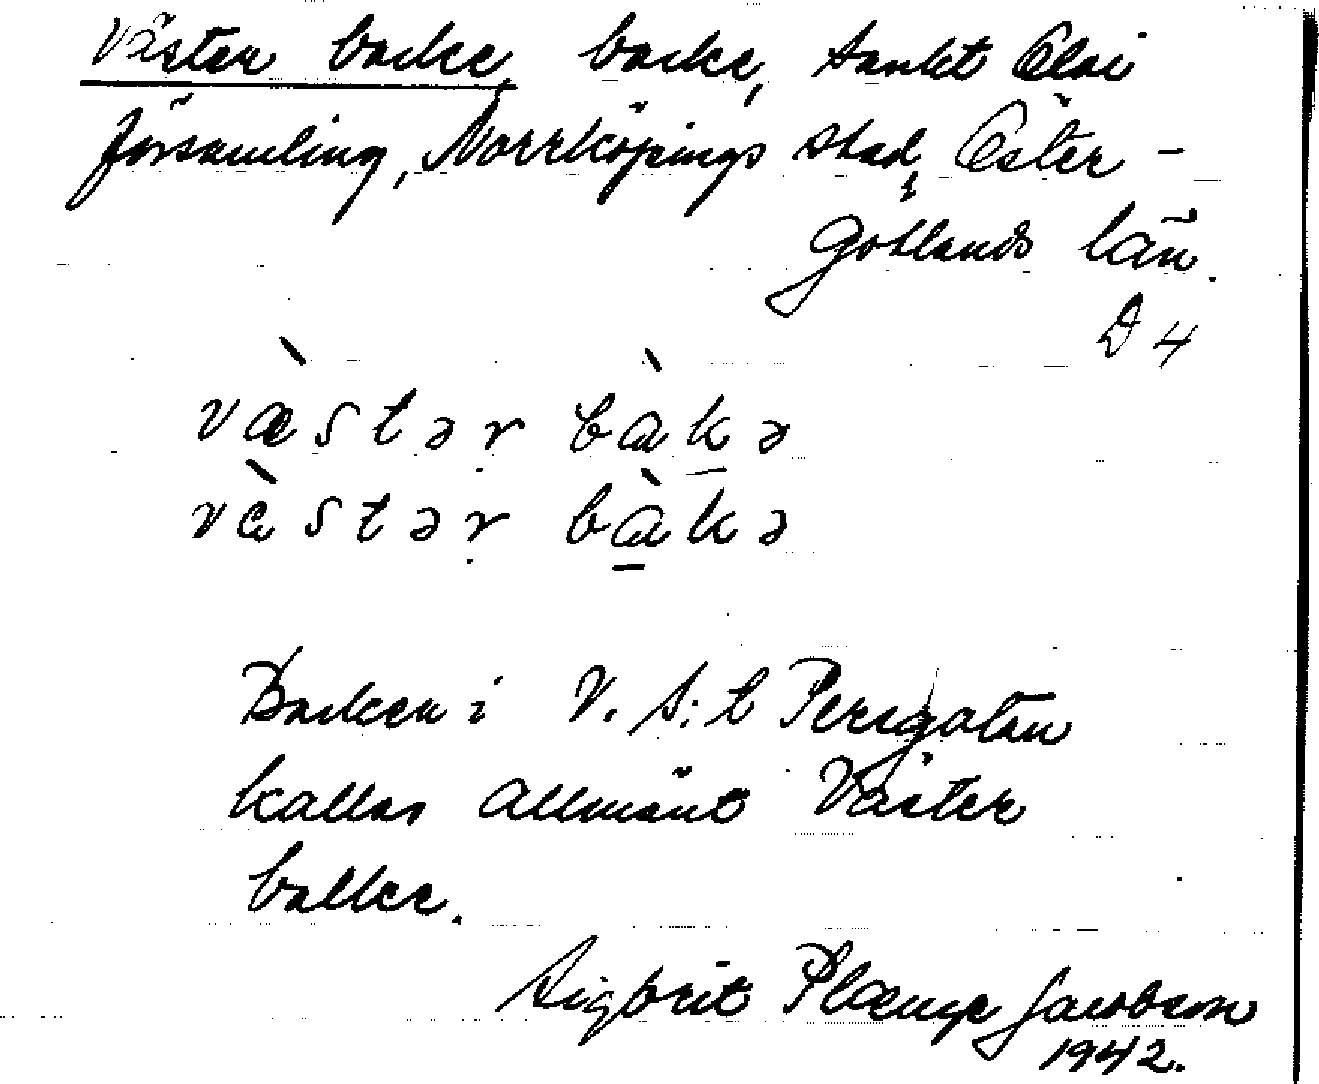 Väster backe, backe, Sankt Olai
församling, Norrköpings stad, Öster-
götlands län.
D 4
væ̀stər bàkə
vèstər bàkə
Backen i V. S:t Persgatan
kallas allmänt Väster
backe.
Sigbrit Plænge Jacobson
1942.